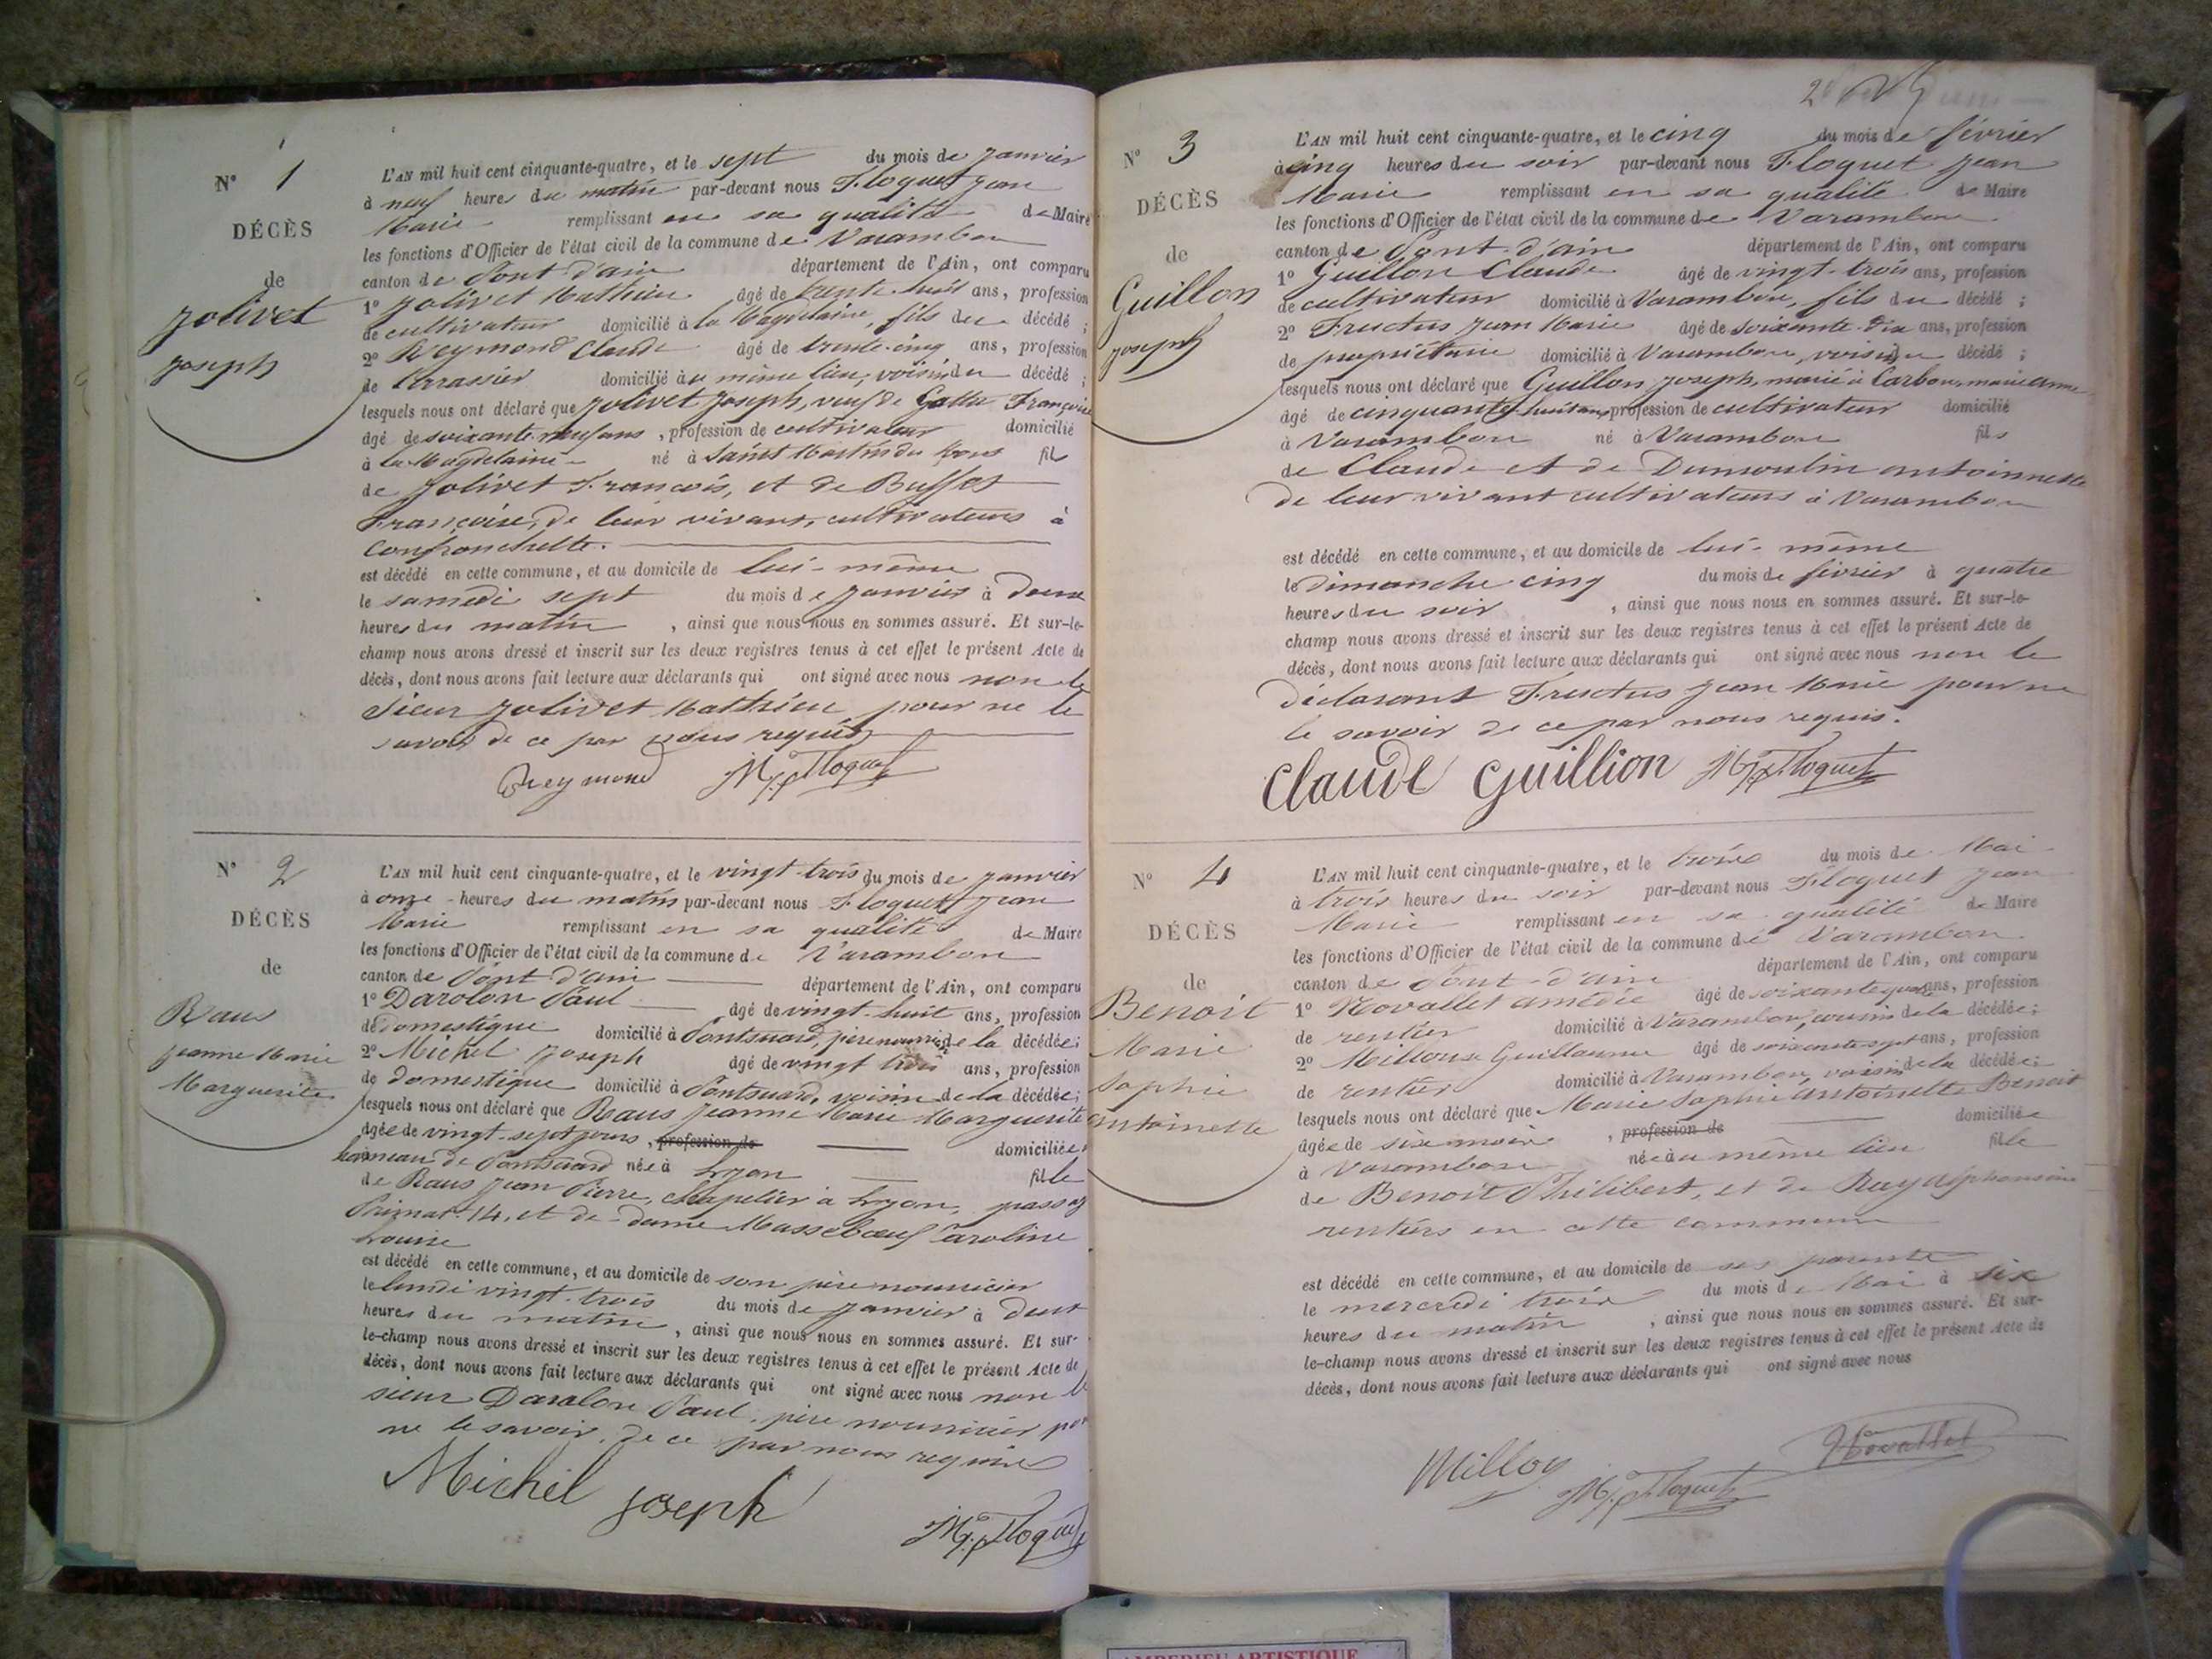 N° 1
DÉCÈS
de
Jolivet
Joseph
L'AN mil huit cent cinquante-quatre, et le sept du mois de Janvier
à neuf heures du matin par-devant nous Floquet Jean
Marie remplissant en sa qualité de Maire
les fonctions d'Officier de l'état civil de la commune de Varambon
canton de Pont d'ain département de l'Ain, ont comparu
1° Jolivet Mathieu âgé de trente huit ans, profession
de cultivateur domicilié à la Magdelaine, fils du décédé ;
2° Reymond Claude âgé de trente-cinq ans, profession
de terrassier domicilié au même lieu, voisin du décédé ;
lesquels nous ont déclaré que Jolivet Joseph, veuf de Françoise
âgé de soixante neuf ans, profession de cultivateur domicilié
à la Magdelaine né à Saint Martin du Mont fils
de Jolivet François, et de Buffet
Françoise, de leur vivant, cultivateurs à
Confranchette.
est décédé en cette commune, et au domicile de lui-même
le samedi sept du mois de Janvier à deux
heures du matin, ainsi que nous nous en sommes assuré. Et sur-le-
champ nous avons dressé et inscrit sur les deux registres tenus à cet effet le présent Acte de
décès, dont nous avons fait lecture aux déclarants qui ont signé avec nous non le
sieur Jolivet Mathieu pour ne le
savoir de ce par nous requis
Reymond JM Floquet
N° 2
DÉCÈS
de
Raus
Jeanne Marie
Marguerite
L'AN mil huit cent cinquante-quatre, et le vingt-trois du mois de Janvier
à onze heures du matin par-devant nous Floquet Jean
Marie remplissant en sa qualité de Maire
les fonctions d'Officier de l'état civil de la commune de Varambon
canton de Pont d'ain département de l'Ain, ont comparu
1° Darolon Paul âgé de vingt-huit ans, profession
de domestique domicilié à Pontsuard, père nourricier de la décédée ;
2° Michel Joseph âgé de vingt trois ans, profession
de domestique domicilié à Pontsuard, voisin de la décédée ;
lesquels nous ont déclaré que Raus Jeanne Marie Marguerite
âgée de vingt-sept jours, profession de domiciliée
hameau de Pontsuard née à Lyon fille
de Raus Jean Pierre, chapelier à Lyon, passage
14, et de dame Masseboeuf Caroline
Louise
est décédé en cette commune, et au domicile de son père nourricier
le lundi vingt-trois du mois de Janvier à deux
heures du matin, ainsi que nous nous en sommes assuré. Et sur-
le-champ nous avons dressé et inscrit sur les deux registres tenus à cet effet le présent Acte de
décès, dont nous avons fait lecture aux déclarants qui ont signé avec nous non le
sieur Darolon Paul, père nourricier pour
ne le savoir, de ce par nous requis
Michel Joseph
JM Floquet
2
N° 3
DÉCÈS
de
Guillon
Joseph
L'AN mil huit cent cinquante-quatre, et le cinq du mois de février
à cinq heures du soir par-devant nous Floquet Jean
Marie remplissant en sa qualité de Maire
les fonctions d'Officier de l'état civil de la commune de Varambon
canton de Pont-d'ain département de l'Ain, ont comparu
1° Guillon Claude âgé de vingt-trois ans, profession
de cultivateur domicilié à Varambon, fils du décédé ;
2° Fructus Jean Marie âgé de soixante-dix ans, profession
de propriétaire domicilié à Varambon, voisin du décédé ;
lesquels nous ont déclaré que Guillon Joseph, marié à Carbon, marie anne
âgé de cinquante-huit ans, profession de cultivateur domicilié
à Varambon né à Varambon fils
de Claude et de Dumoulin antoinette
de leur vivant cultivateurs à Varambon
est décédé en cette commune, et au domicile de lui-même
le dimanche cinq du mois de février à quatre
heures du soir, ainsi que nous nous en sommes assuré. Et sur-le-
champ nous avons dressé et inscrit sur les deux registres tenus à cet effet le présent Acte de
décès, dont nous avons fait lecture aux déclarants qui ont signé avec nous non le
déclarant Fructus Jean Marie pour ne
le savoir de ce par nous requis.
Claude Guillion JM Floquet
N° 4
DÉCÈS
de
Benoit
Marie
Sophie
antoinette
L'AN mil huit cent cinquante-quatre, et le trois du mois de Mai
à trois heures du soir par-devant nous Floquet Jean
Marie remplissant en sa qualité de Maire
les fonctions d'Officier de l'état civil de la commune de Varambon
canton de Pont-d'ain département de l'Ain, ont comparu
1° amédée âgé de soixante quatre ans, profession
de rentier domicilié à Varambon, cousin de la décédée ;
2° Guillaume âgé de soixante-sept ans, profession
de rentier domicilié à Varambon, voisin de la décédée ;
lesquels nous ont déclaré que Marie Sophie antoinette Benoit
âgée de six mois, profession de domiciliée
à Varambon née au même lieu fille
de Benoit Philibert, et de Ruy alphonsine
rentiers en cette commune
est décédé en cette commune, et au domicile de ses parents
le mercredi trois du mois de Mai à six
heures du matin, ainsi que nous nous en sommes assuré. Et sur-
le-champ nous avons dressé et inscrit sur les deux registres tenus à cet effet le présent Acte de
décès, dont nous avons fait lecture aux déclarants qui ont signé avec nous
Milloy JM Floquet
AMPERIEU ARTISTIQUE